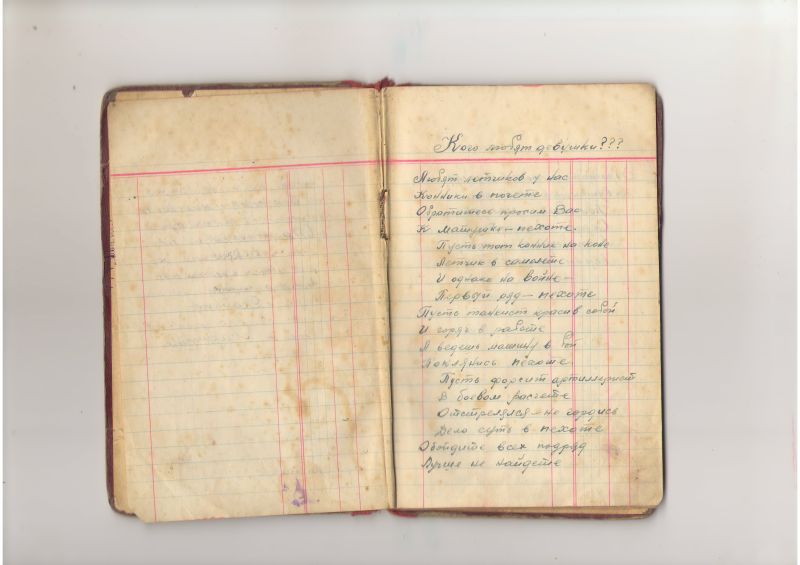 Кого любят девушки???
Любят летчиков у нас
Конники в почете
Обратитесь просим Вас
К матушке-пехоте.
Пусть тот конник на коне
Летчик в самолете
И однако на войне-
Первый ряд-пехоте
Пусть танкист красив собой
И горд в работе
А ведешь машину в бой
Поклянись пехоте
Пусть форсит артиллерист
В боевом расчете
Отстрелялся-не гордись
Дело суть в пехоте
Обойдите всех подряд
Лучше не найдете